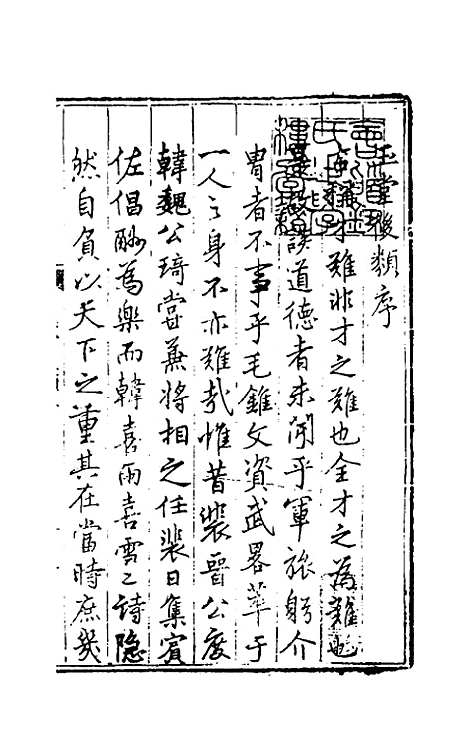 玉堂後類序
才難非才之難也全才之為難也
談道德者未聞乎軍旅躬介
胄者不事乎毛錐文資武畧萃于
一人之身不亦難哉惟昔裴晉公度
韓魏公琦嘗兼將相之任裴日集賓
佐倡酬為樂而韓喜雨喜雪之詩隱
然自負以天下之重其在當時庶幾